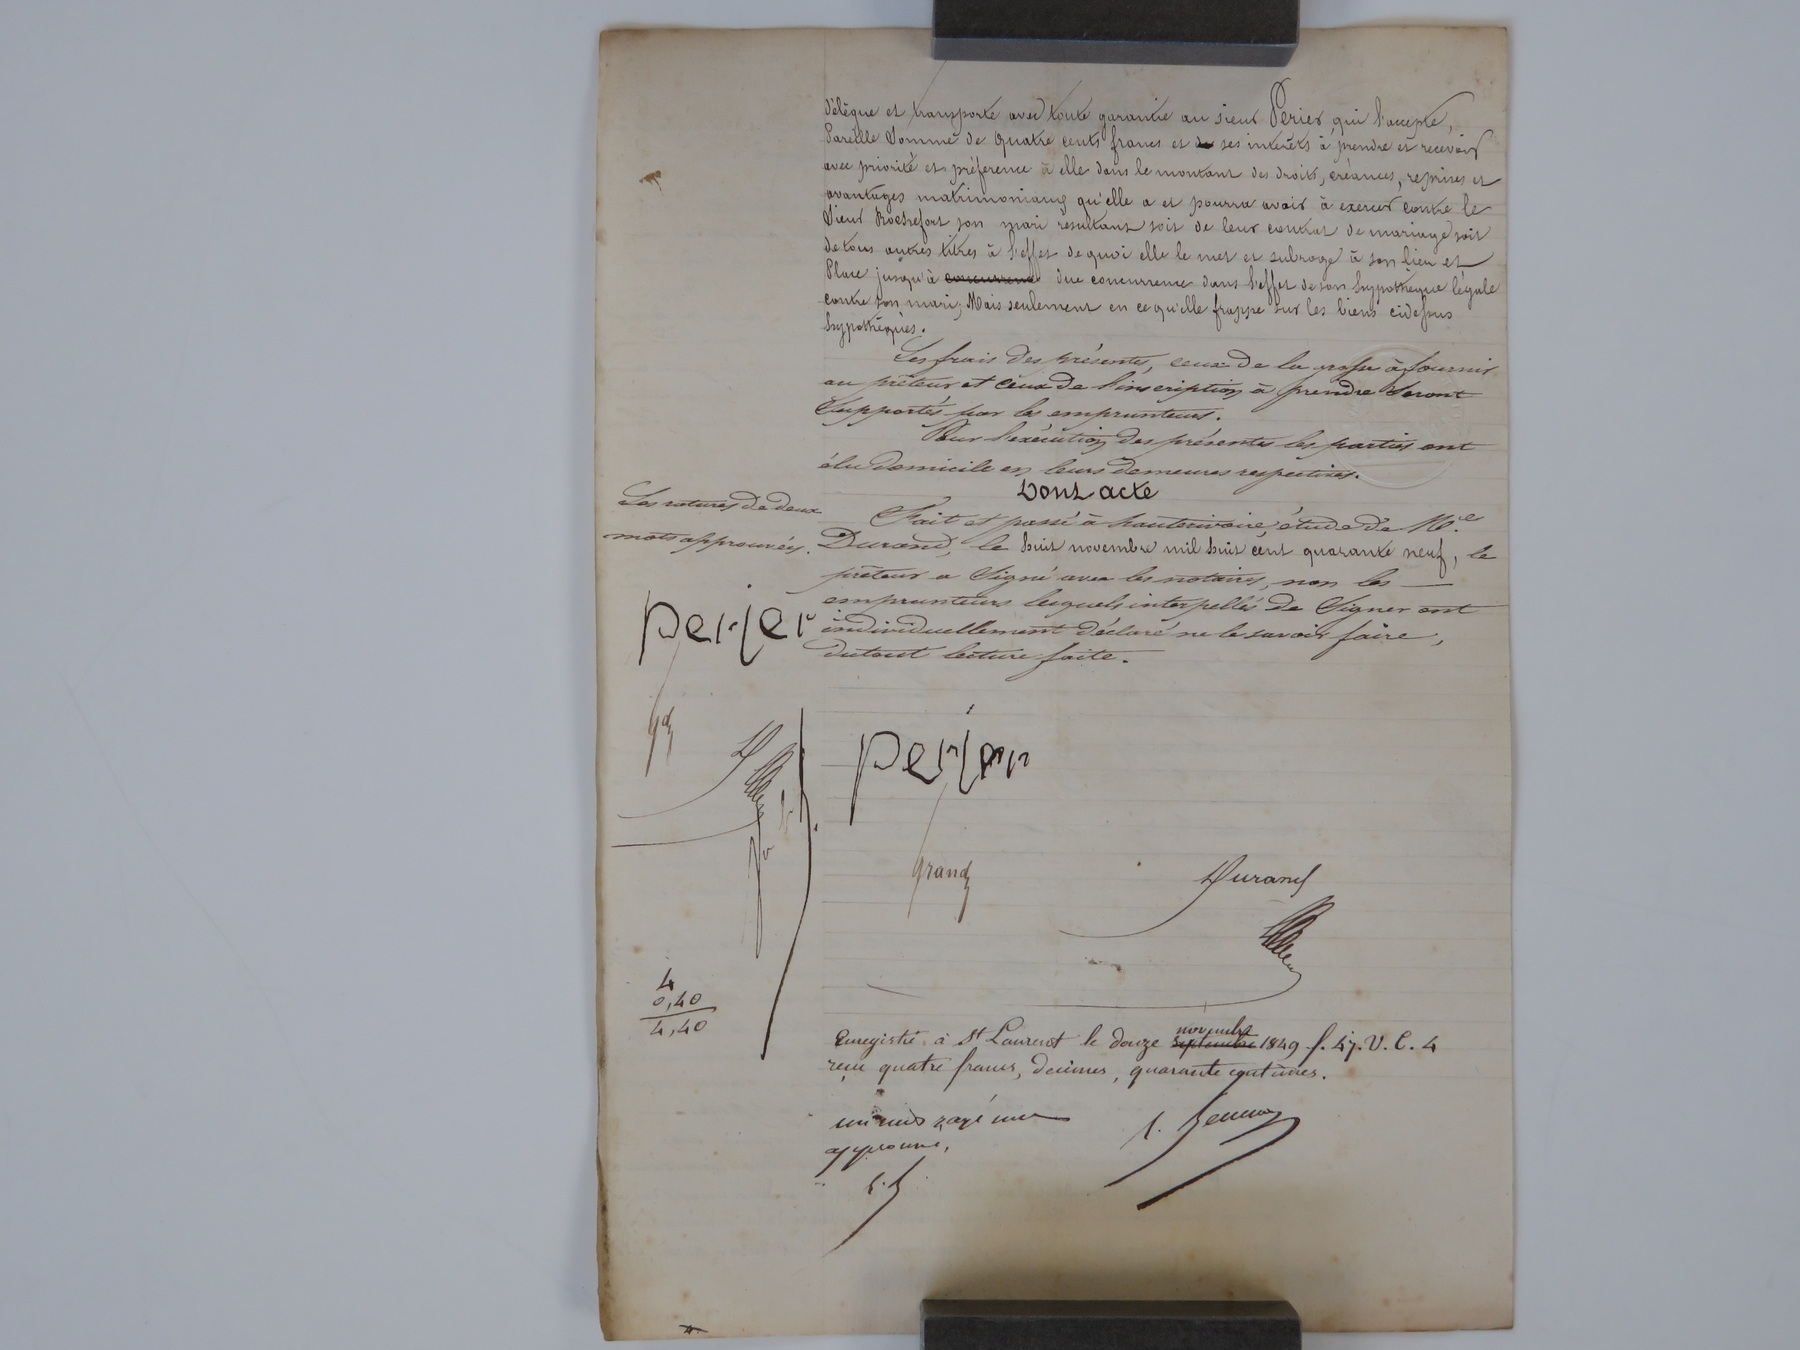 délègue et transporte avec toute garantie au sieur Périer qui l'accepte,
Pareille Somme de quatre cents francs et de ses intérêts à prendre et recevoir
avec priorité et préférence à elle dans le montant des droits, créances, reprises et
avantages matrimoniaux qu'elle a et pourra avoir à exercer contre le
Sieur Rochefort son mari résultant soit de leur contrat de mariage soit
de tous autres titres à l'effet de quoi elle le met et subroge à son lieu et
Place jusqu'à concurrence due concurrence dans l'effet de son hypothèque légale
contre son mari, Mais seulement en ce qu'elle frappe sur les biens cidessus
hypothéqués.
Les frais des présentes, ceux de la grosse à fournir
au prêteur et ceux de l'inscription à prendre Seront
Supportés par les emprunteurs.
Pour l'exécution des présentes les parties ont
élu domicile en leurs demeures respectives.
Dont acte
Fait et passé à hauterivoire, étude de Me
Durand, le huit novembre mil huit cent quarante neuf, le
prêteur a Signé avec les notaires, non les
emprunteurs lesquels interpellés de Signer ont
individuellement déclaré ne le savoir faire,
dutout lecture faite.
Les ratures de deux
mots approuvées.
perier
gd
D
perier
grand
Durand
4
0,40
4,40
Enregistré à St Laurent le douze septembre novembre 1849 f. 47. V. C. 4
reçu quatre francs, décimes, quarante centimes.
un mot rayé nul
approuvé,